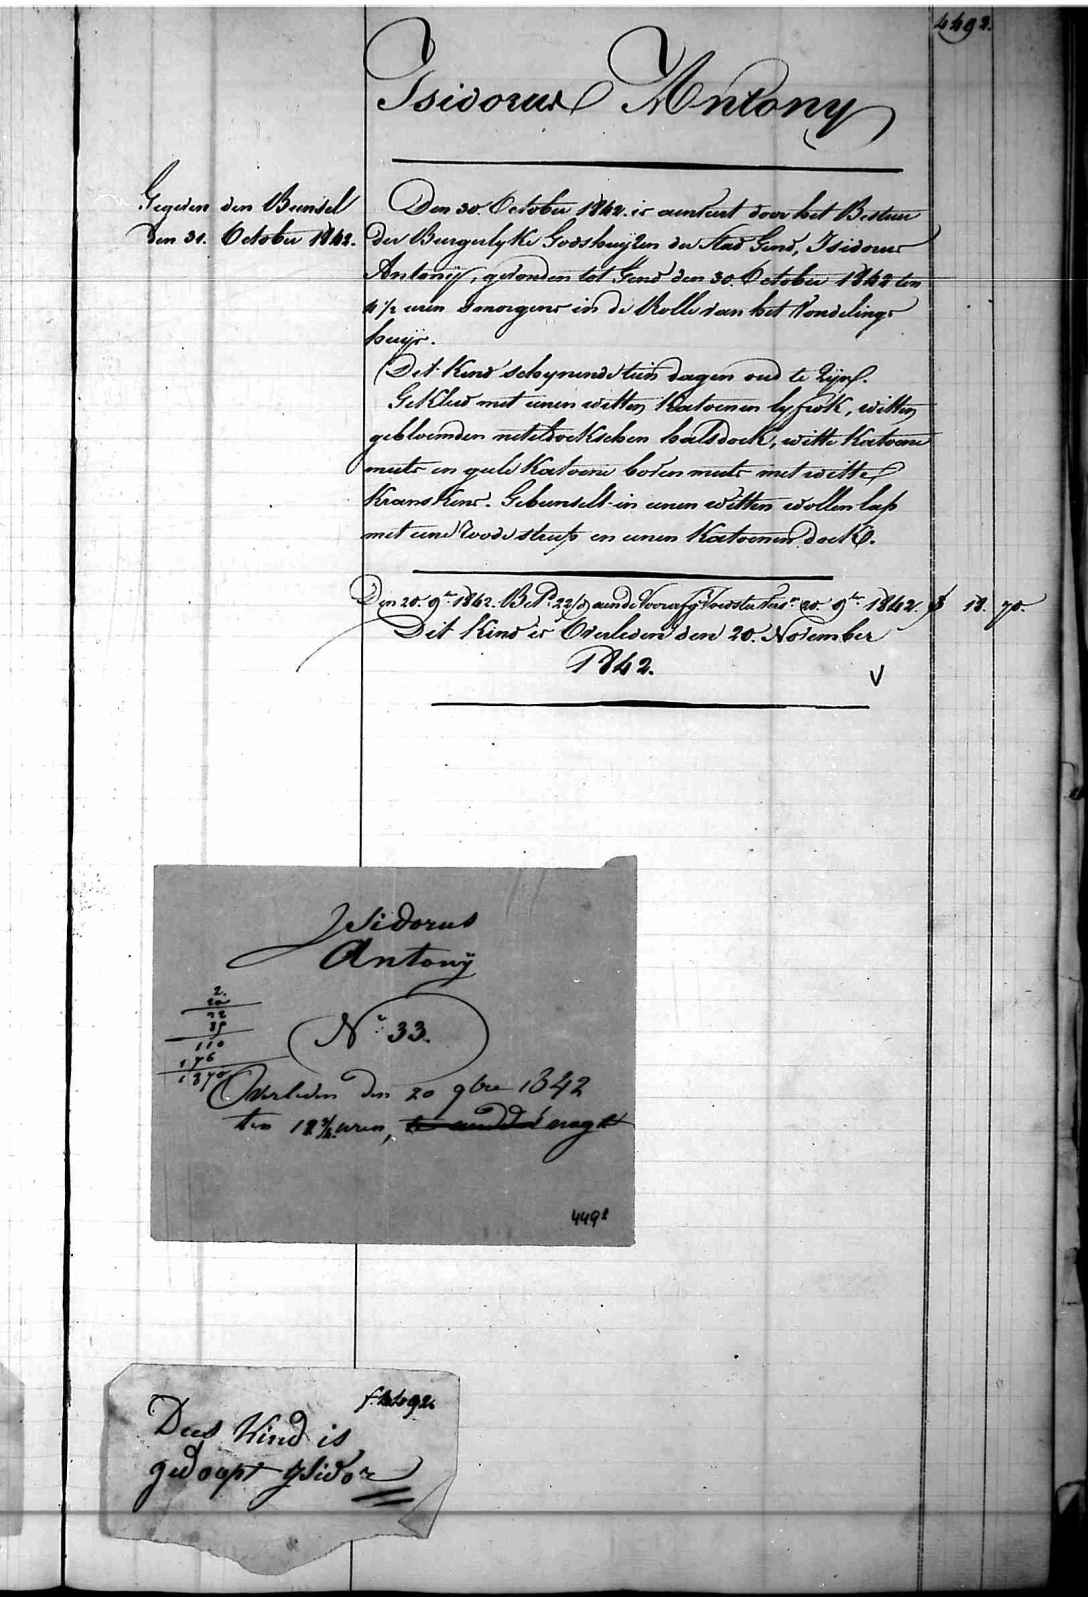 4492.
Isidorus Antony
Gegeven den Bunsel
den 30. October 1842.
Den 30. October 1842. is aenveert door het Bestuer
der Burgerlyke Godshuijzen der Stad Gend, Isidorus
Antonij, gevonden tot Gend den 30. October 1842 ten
4 1/2 uren smorgens in de Rolle van het Vondelings
huijs.
Dit Kind schynende tien dagen oud te Zijn.
Gekleed met eenen witten Katoenen lyfrok, witten
gebloemden neteldoekschen halsdoek, witte Katoene
muts en geele Katoene boven muts met witte
Kranskens. Gebunselt in eenen witten wollen lap
met eene roode streep en eenen Katoenen doek.
Den 20. 9br 1842. Bet. 22/d aen de Voorzg. Voedster 20. 9br 1842. f 18. 70.
Dit Kind is Overleden den 20. November
1842.
V
Isidorus
Antonij
N° 33.
2.
20
22
85
110
176
1870
Overleden den 20 9bre 1842
ten 12 3/4 uren,
4492
f. 4492.
Dees Kind is
gedoopt Isidor